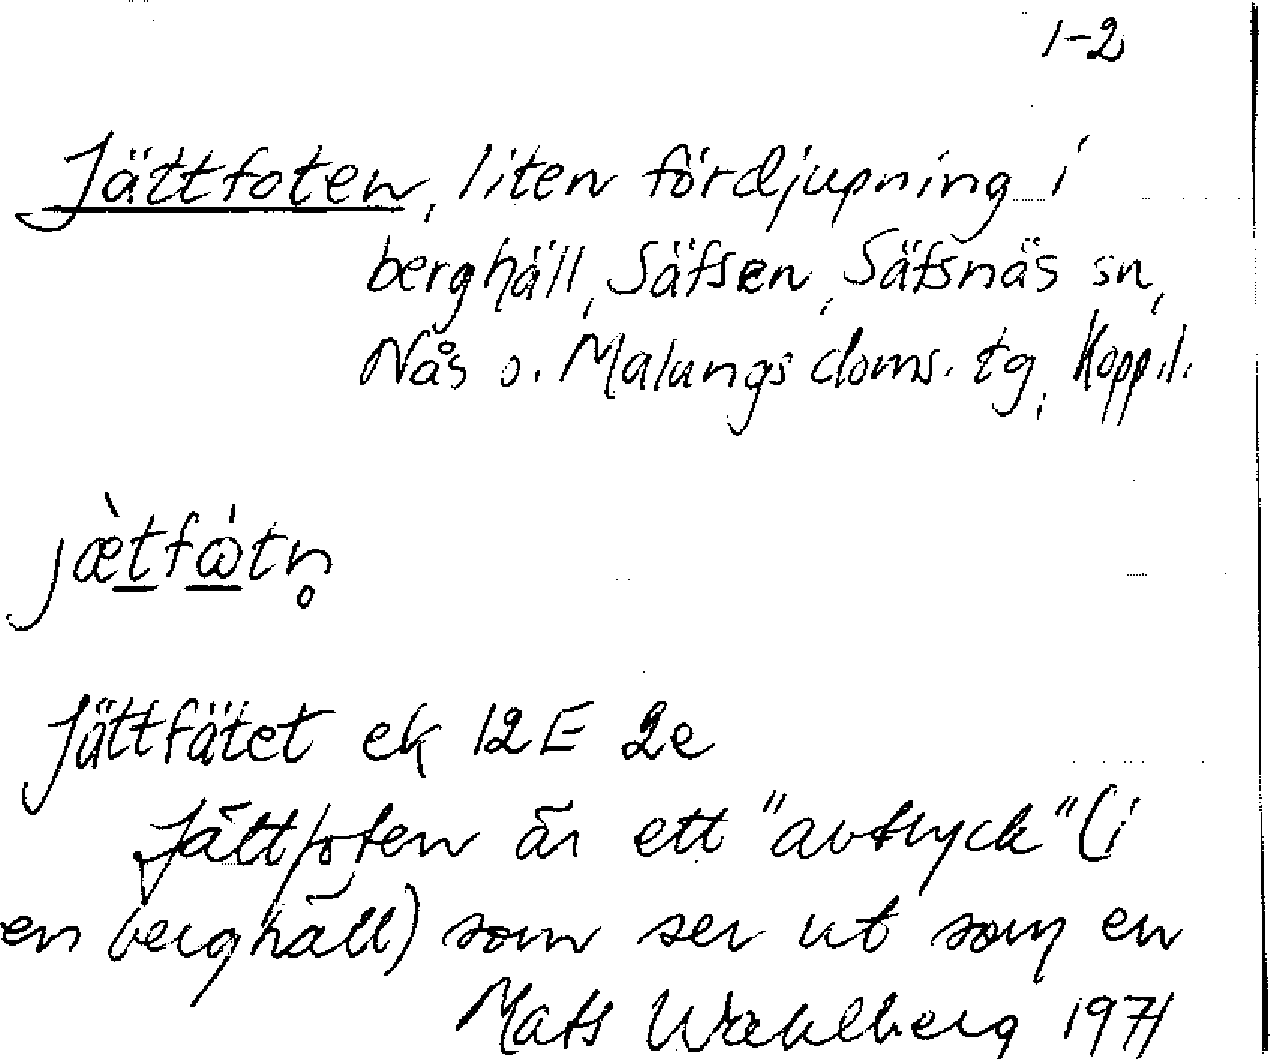 1-2
Jättfoten, liten fördjupning i
berghäll, Säfsen, Säfsnäs sn,
Nås o. Malungs doms. tg, Kopp.l.
jæ̀tfὼtn̥
Jättfätet ek 12E 2e
Jättfoten är ett "avtryck" (i
en berghäll) som ser ut som en
Mats Wahlberg 1971